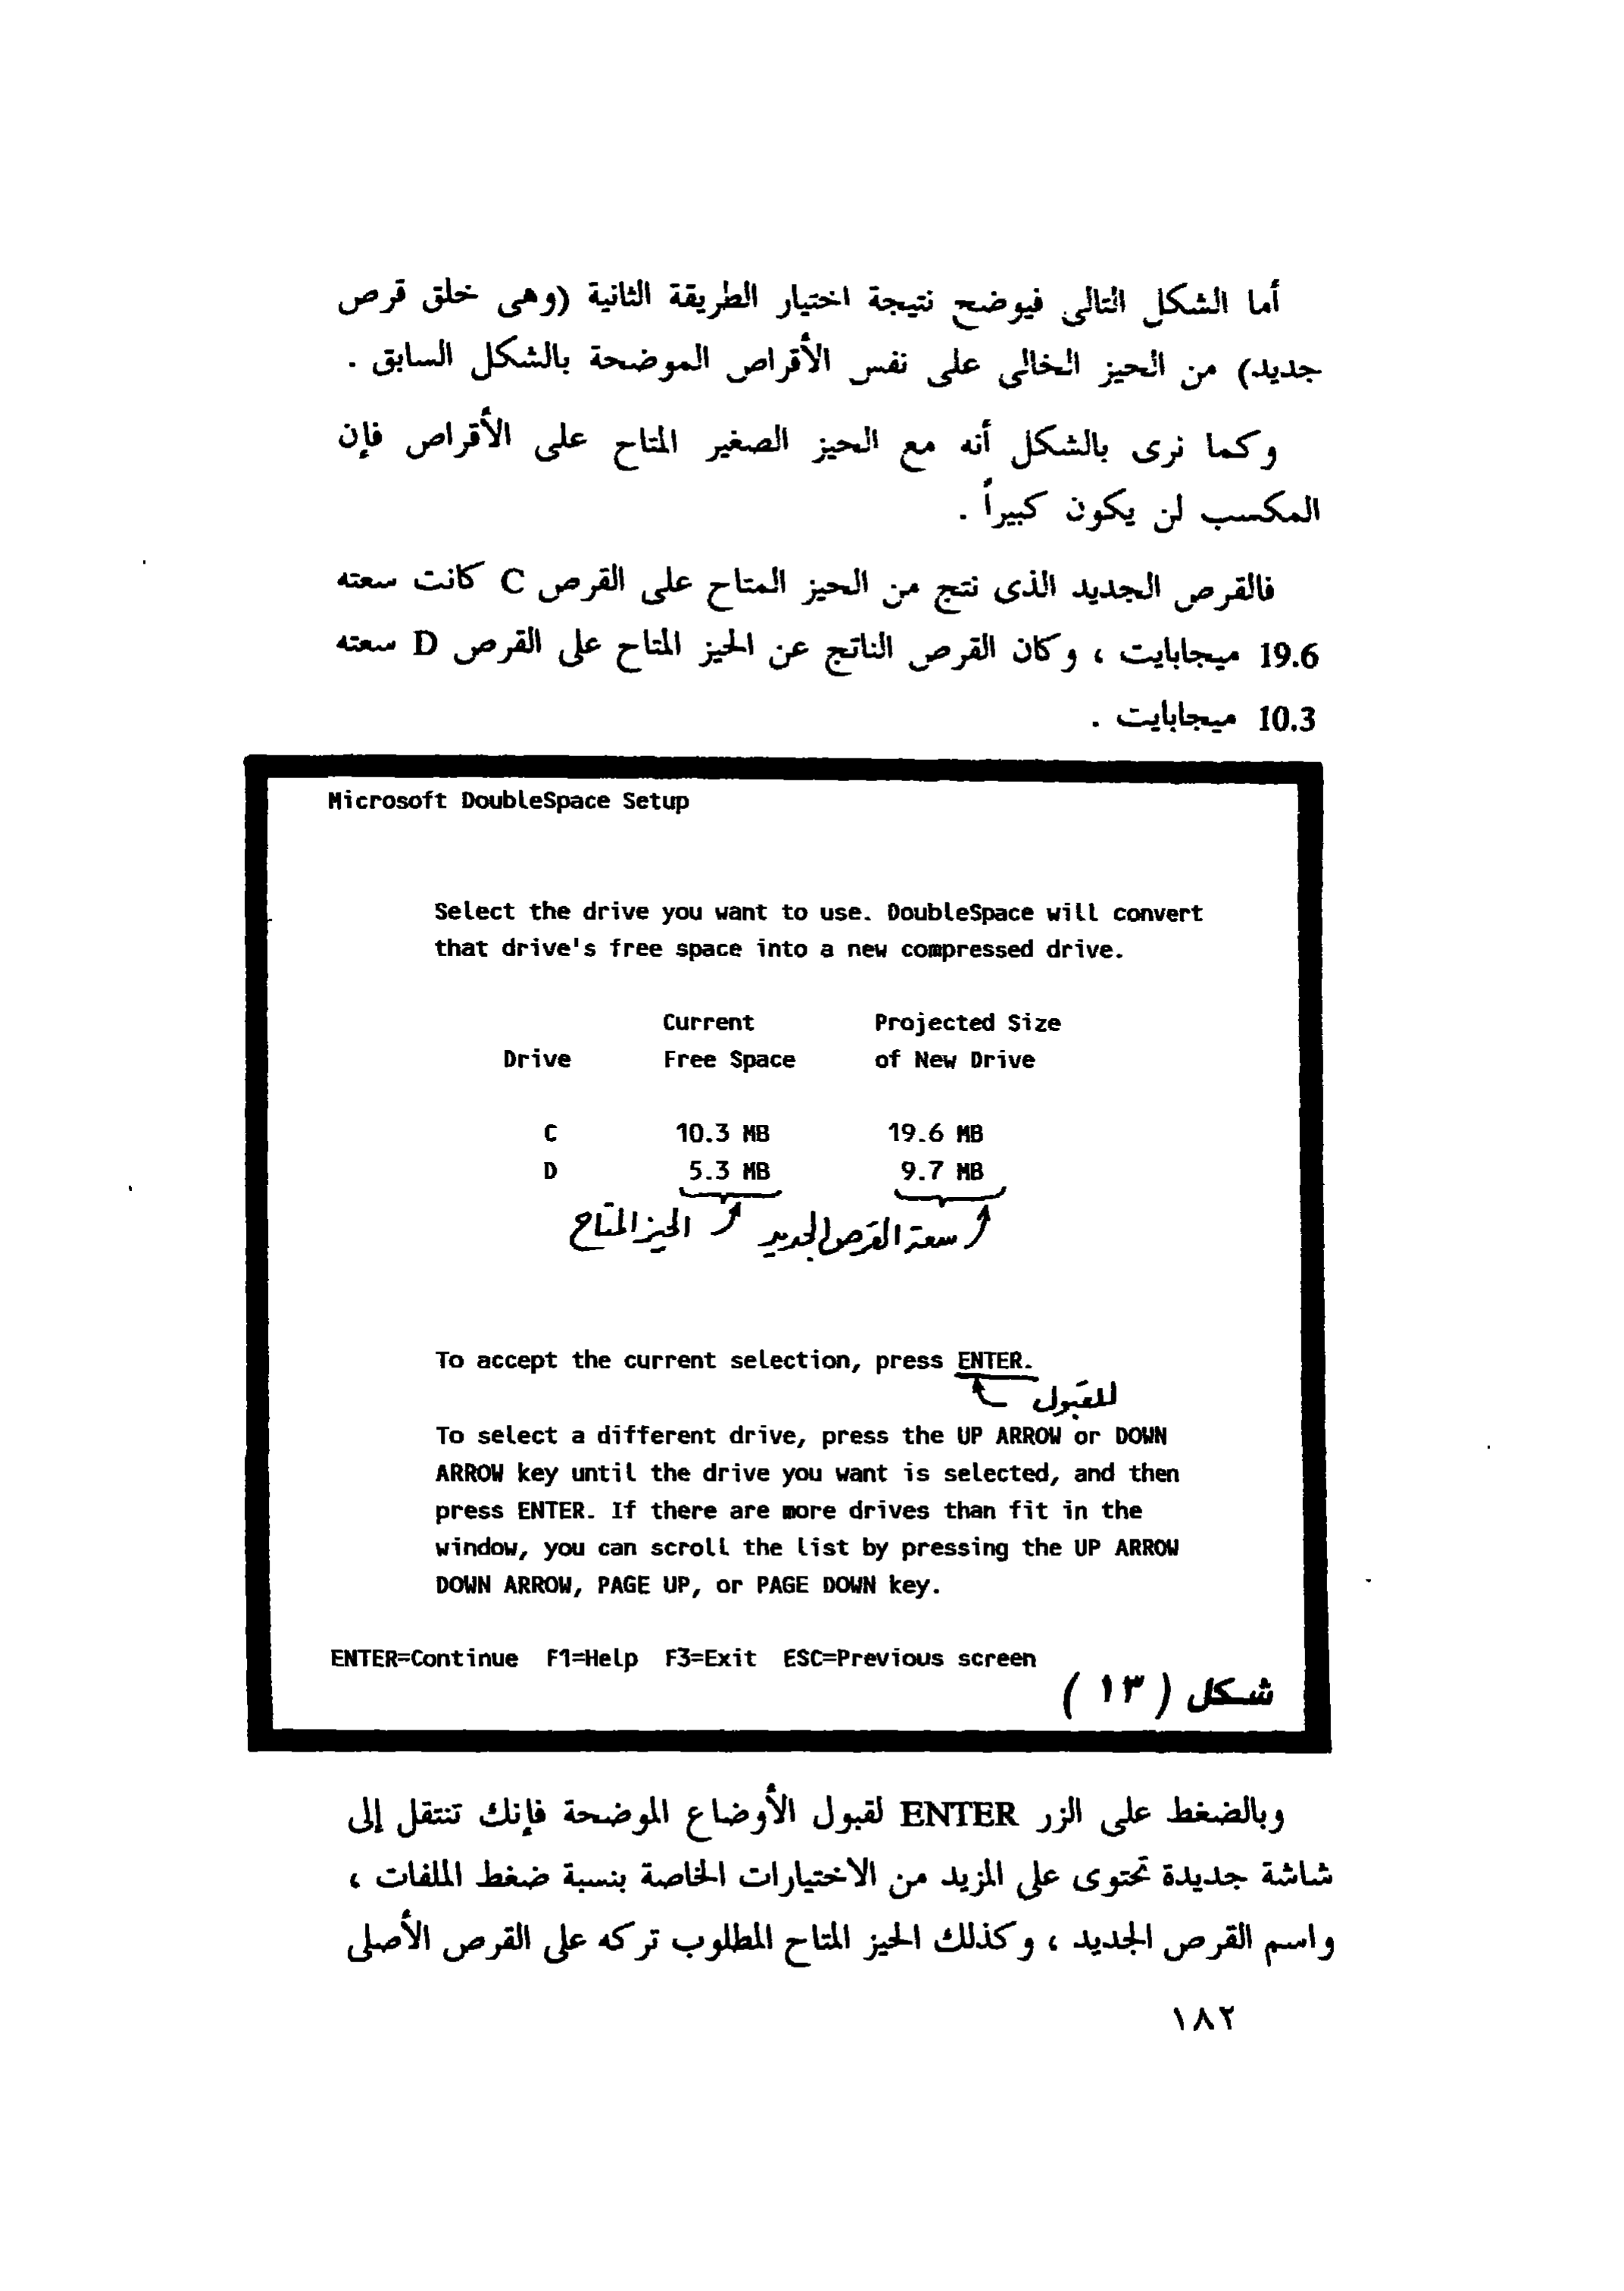 أما الشكل التالى فيوضح نتيجة اختيار الطريقة الثانية (وهى خلق قرص
جديد) من الحيز الخالى على نفس الأقراص الموضحة بالشكل السابق .
وكما نرى بالشكل أنه مع الحيز الصغير المتاح على الأقراص فإن
المكسب لن يكون كبيراً .
فالقرص الجديد الذى نتج من الحيز المتاح على القرص C كانت سعته
19.6 ميجابايت ، وكان القرص الناتج عن الحيز المتاح على القرص D سعته
10.3 ميجابايت .
Microsoft DoubleSpace Setup
Select the drive you want to use. DoubleSpace will convert
that drive's free space into a new compressed drive.
Current Projected Size
Drive Free Space of New Drive
C 10.3 MB 19.6 MB
D 5.3 MB 9.7 MB
سعة القرص الجديد الحيز المتاح
To accept the current selection, press ENTER.
للقبول
To select a different drive, press the UP ARROW or DOWN
ARROW key until the drive you want is selected, and then
press ENTER. If there are more drives than fit in the
window, you can scroll the list by pressing the UP ARROW
DOWN ARROW, PAGE UP, or PAGE DOWN key.
ENTER=Continue F1=Help F3=Exit ESC=Previous screen
شكل ( ١٣ )
وبالضغط على الزر ENTER لقبول الأوضاع الموضحة فإنك تنتقل إلى
شاشة جديدة تحتوى على المزيد من الاختيارات الخاصة بنسبة ضغط الملفات ،
واسم القرص الجديد ، وكذلك الحيز المتاح المطلوب تركه على القرص الأصلى
١٨٢